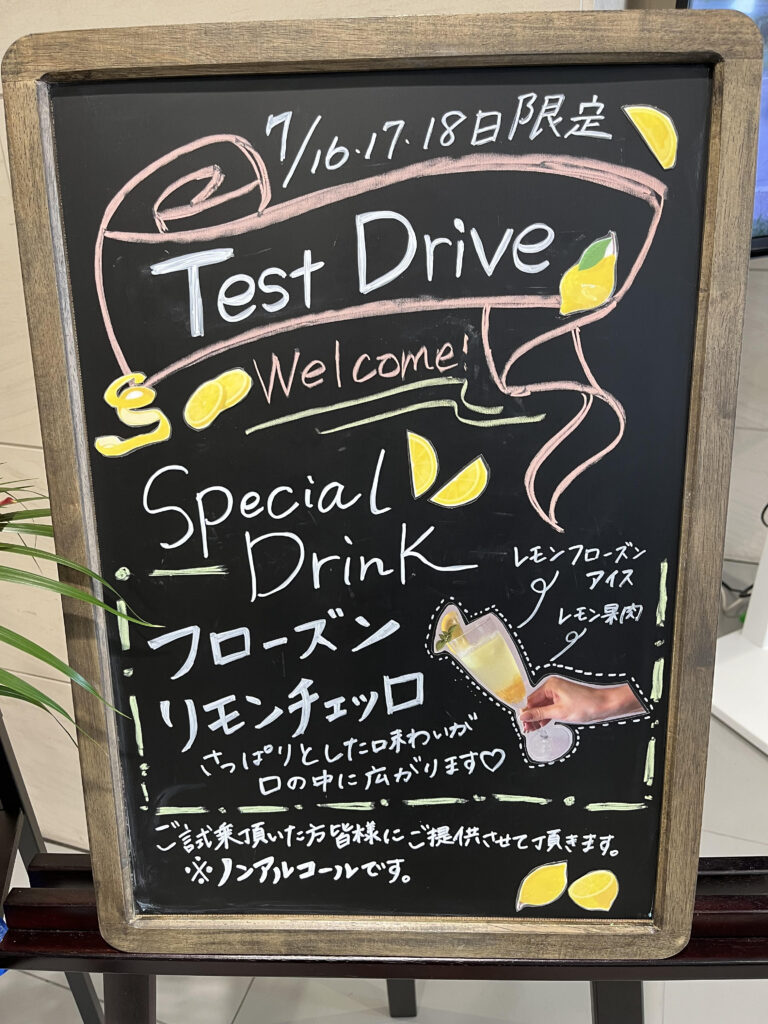 7/16・17・18日限定
Test Drive
Welcome!
Special
Drink
レモンフローズン
アイス
レモン果肉
フローズン
リモンチェッロ
さっぱりとした味わいが
口の中に広がります♡
ご試乗頂いた方皆様にご提供させて頂きます。
※ノンアルコールです。